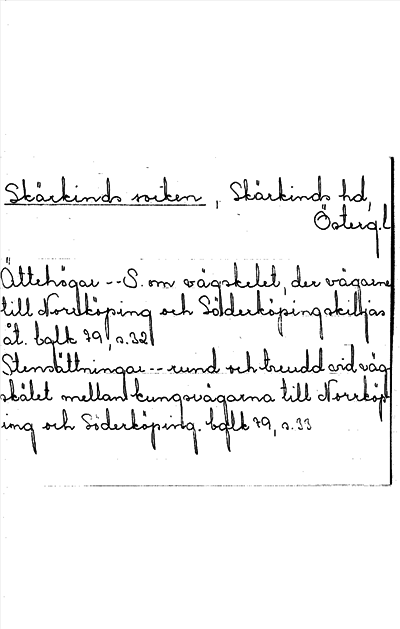 Skärkinds socken, Skärkinds hd,
Österg.l
Ättehögar -- S. om vägskelet, der vägarne
till Norrköping och Söderköping skiljas
åt. bqlk 79, s.32
Stensättningar -- rund och treudd vid väg-
skälet mellan kungsvägarna till Norrköp-
ing och Söderköping. bqlk 79, s.33